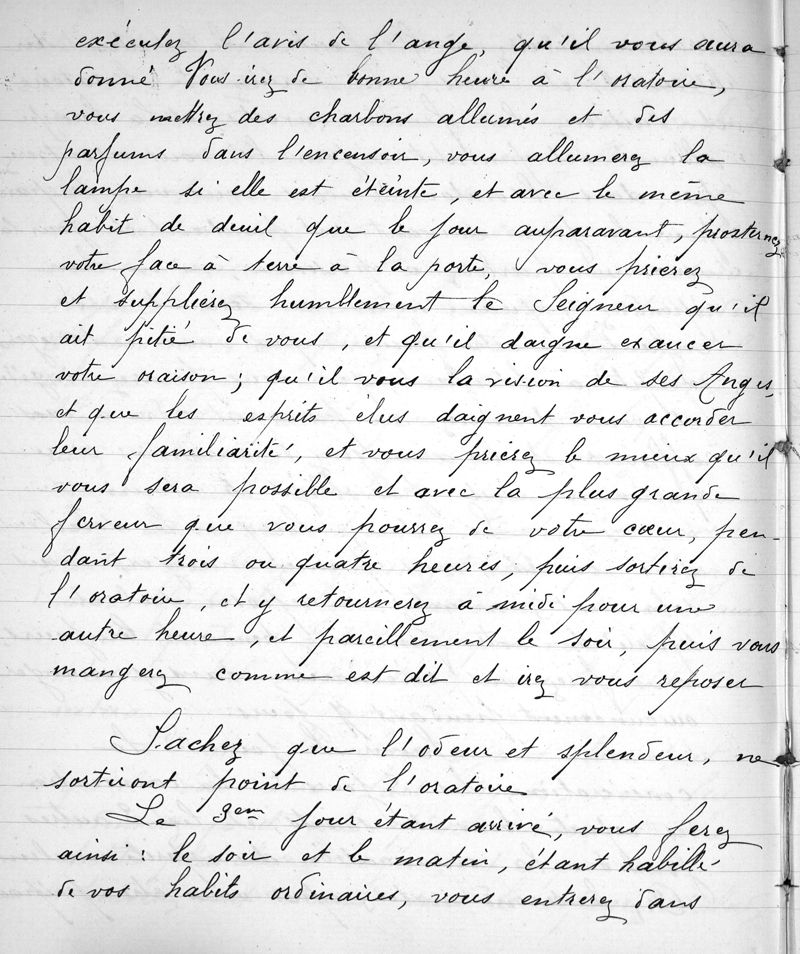 exécutez l'avis de l'ange, qu'il vous aura
donné Vous irez de bonne heure à l'oratoire,
vous mettrez des charbons allumés et des
parfums dans l'encensoir, vous allumerez la
lampe si elle est éteinte, et avec le même
habit de deuil que le jour auparavant, prosternez
votre face à terre à la porte, vous prierez
et supplierez humblement le Seigneur qu'il
ait pitié de vous, et qu'il daigne exaucer
votre oraison; qu'il vous la vision de ses Anges,
et que les esprits élus daignent vous accorder
leur familiarité, et vous prierez le mieux qu'il
vous sera possible et avec la plus grande
ferveur que vous pourrez de votre cœur, pen-
dant trois ou quatre heures, puis sortirez de
l'oratoire, et y retournerez à midi pour une
autre heure, et pareillement le soir, puis vous
mangerez comme est dit et irez vous reposer
Sachez que l'odeur et splendeur, ne
sortiront point de l'oratoire
Le 3em jour étant arrivé, vous ferez
ainsi: le soir et le matin, étant habillé
de vos habits ordinaires, vous entrerez dans